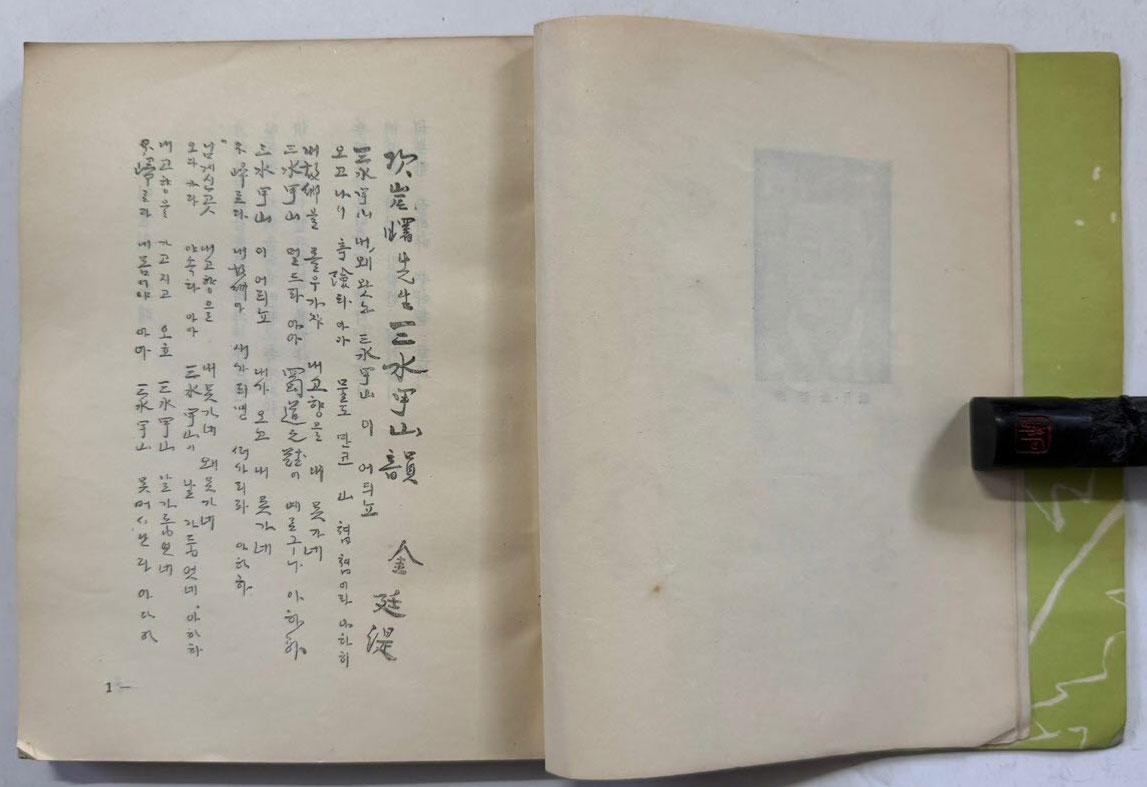 次岸曙先生三水甲山韻 金廷湜
三水甲山 내 왜 왓노 三水甲山 이 어듸뇨
오고나니 奇險타 아아 물도 만코 山 첩첩이라 아하하
내故鄕을 돌우가쟈 내고향을 내 못가네
三水甲山 멀드라 아아 蜀道之難이 예로구나 아하하
三水甲山 이 어듸뇨 내가 오고 내 못가네
不歸로다 내故鄕아 새가되면 떠가리라 아하하
님게신곳 내고향을 내못가네 왜못가네
오다가다 야속타 아아 三水甲山이 날 가둡엇네 아하하
내고향을 가고지고 오호 三水甲山 날가둡엇네
不歸로다 내몸이야 아아 三水甲山 못버서난다 아하하
1 —